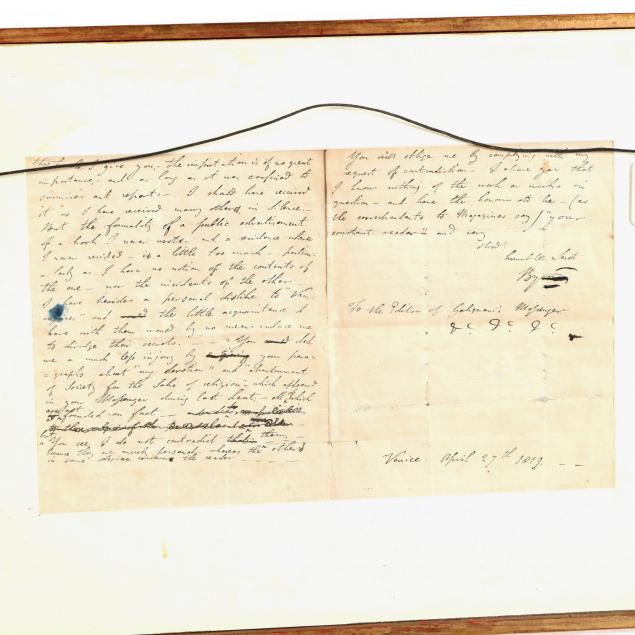 I give you – the imputation is of no great
importance – and as long as it was confined to
surmises and reports – I should have received
it as I have received many others in Silence. –
But the formality of a public advertisement
of a book I never wrote – and a residence where
I never resided – is a little too much – particu-
-larly as I have no notion of the contents of
the one – nor the incidents of the other. –
I have besides a personal dislike to "Vam-
and the little acquaintance I
have with them would by no means induce me
to divulge their secrets. – You did
me a much less injury by your para-
-graphs about "my devotion" and "abandonment
of Society for the Sake of religion" – which appeared
in your Messenger during last Lent – all of which
are not founded on fact –
but
You see I do not contradict them,
because they are merely personal, whereas the others
in some degree concern the reader
You will oblige me by complying with my
request of contradiction. – I assure you that
I know nothing of the work or works in
question – and have the honour to be – (as
the correspondents to Magazines say) "your
constant reader" and very
obedt
humble Servt
By
To the Editor of Galignani's Messenger
&c. &c. &c.
Venice April 27th 1819.